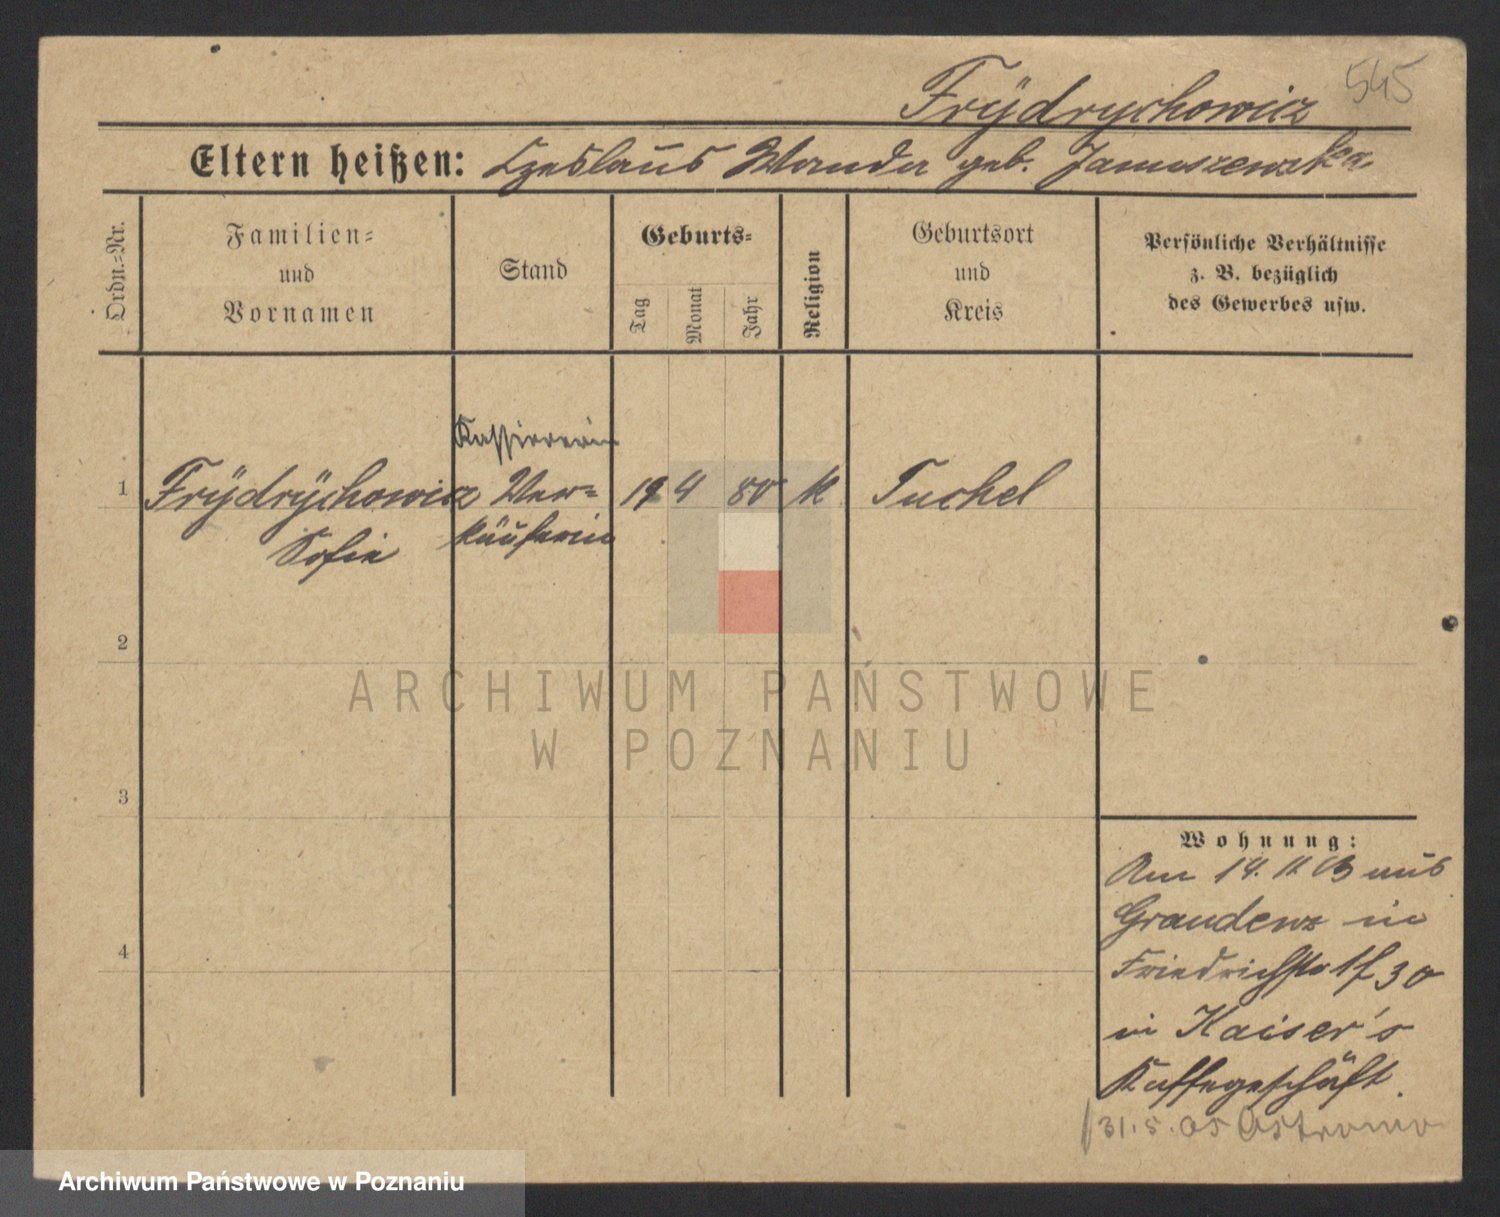 545
Frÿdrychowicz
Eltern heißen: Czeslaus Wanda geb. Januszewska.
Ordn.-Nr.
Familien-
und
Vornamen
Stand
Geburts-
Tag
Monat
Jahr
Religion
Geburtsort
und
Kreis
Persönliche Verhältnisse
z. B. bezüglich
des Gewerbes usw.
Kassirerin
1 Frÿdrÿchowicz Ver- 19 4 80 k Tuchel
Sofie käuferin
2
ARCHIWUM PAŃSTWOWE
W POZNANIU
3
4
Wohnung:
Am 14. 11 03 aus
Graudenz in
Friedrichstr 1 f 30
in Kaiser's
Kaffegeschäft.
31.5.05 Ostrowo
Archiwum Państwowe w Poznaniu